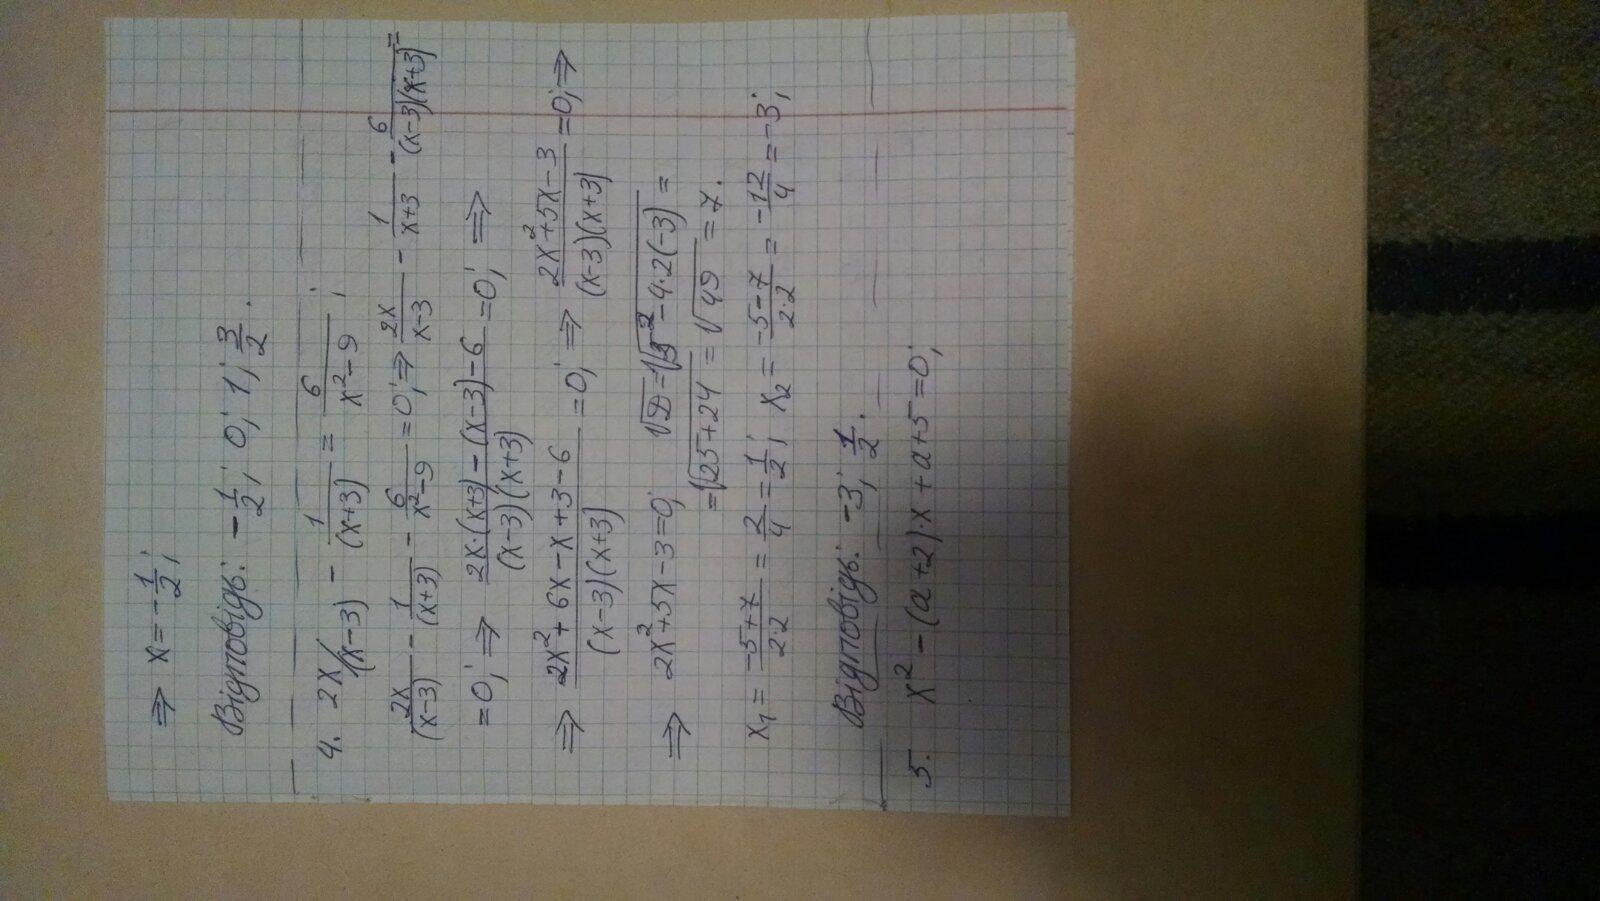 ⇒ x = -1/2;
Відповідь: -1/2; 0; 1; 3/2.
4. 2x/(x-3) - 1/(x+3) = 6/(x²-9);
2x/(x-3) - 1/(x+3) - 6/(x²-9) = 0; ⇒ 2x/(x-3) - 1/(x+3) - 6/((x-3)(x+3)) =
= 0; ⇒ (2x·(x+3) - (x-3) - 6)/((x-3)(x+3)) = 0; ⇒
⇒ (2x² + 6x - x + 3 - 6)/((x-3)(x+3)) = 0; ⇒ (2x² + 5x - 3)/((x-3)(x+3)) = 0; ⇒
⇒ 2x² + 5x - 3 = 0; √D = √(5² - 4·2(-3)) =
= √(25+24) = √49 = 7.
x₁ = (-5+7)/(2·2) = 2/4 = 1/2; x₂ = (-5-7)/(2·2) = -12/4 = -3;
Відповідь: -3; 1/2.
5. x² - (a+2)·x + a + 5 = 0;